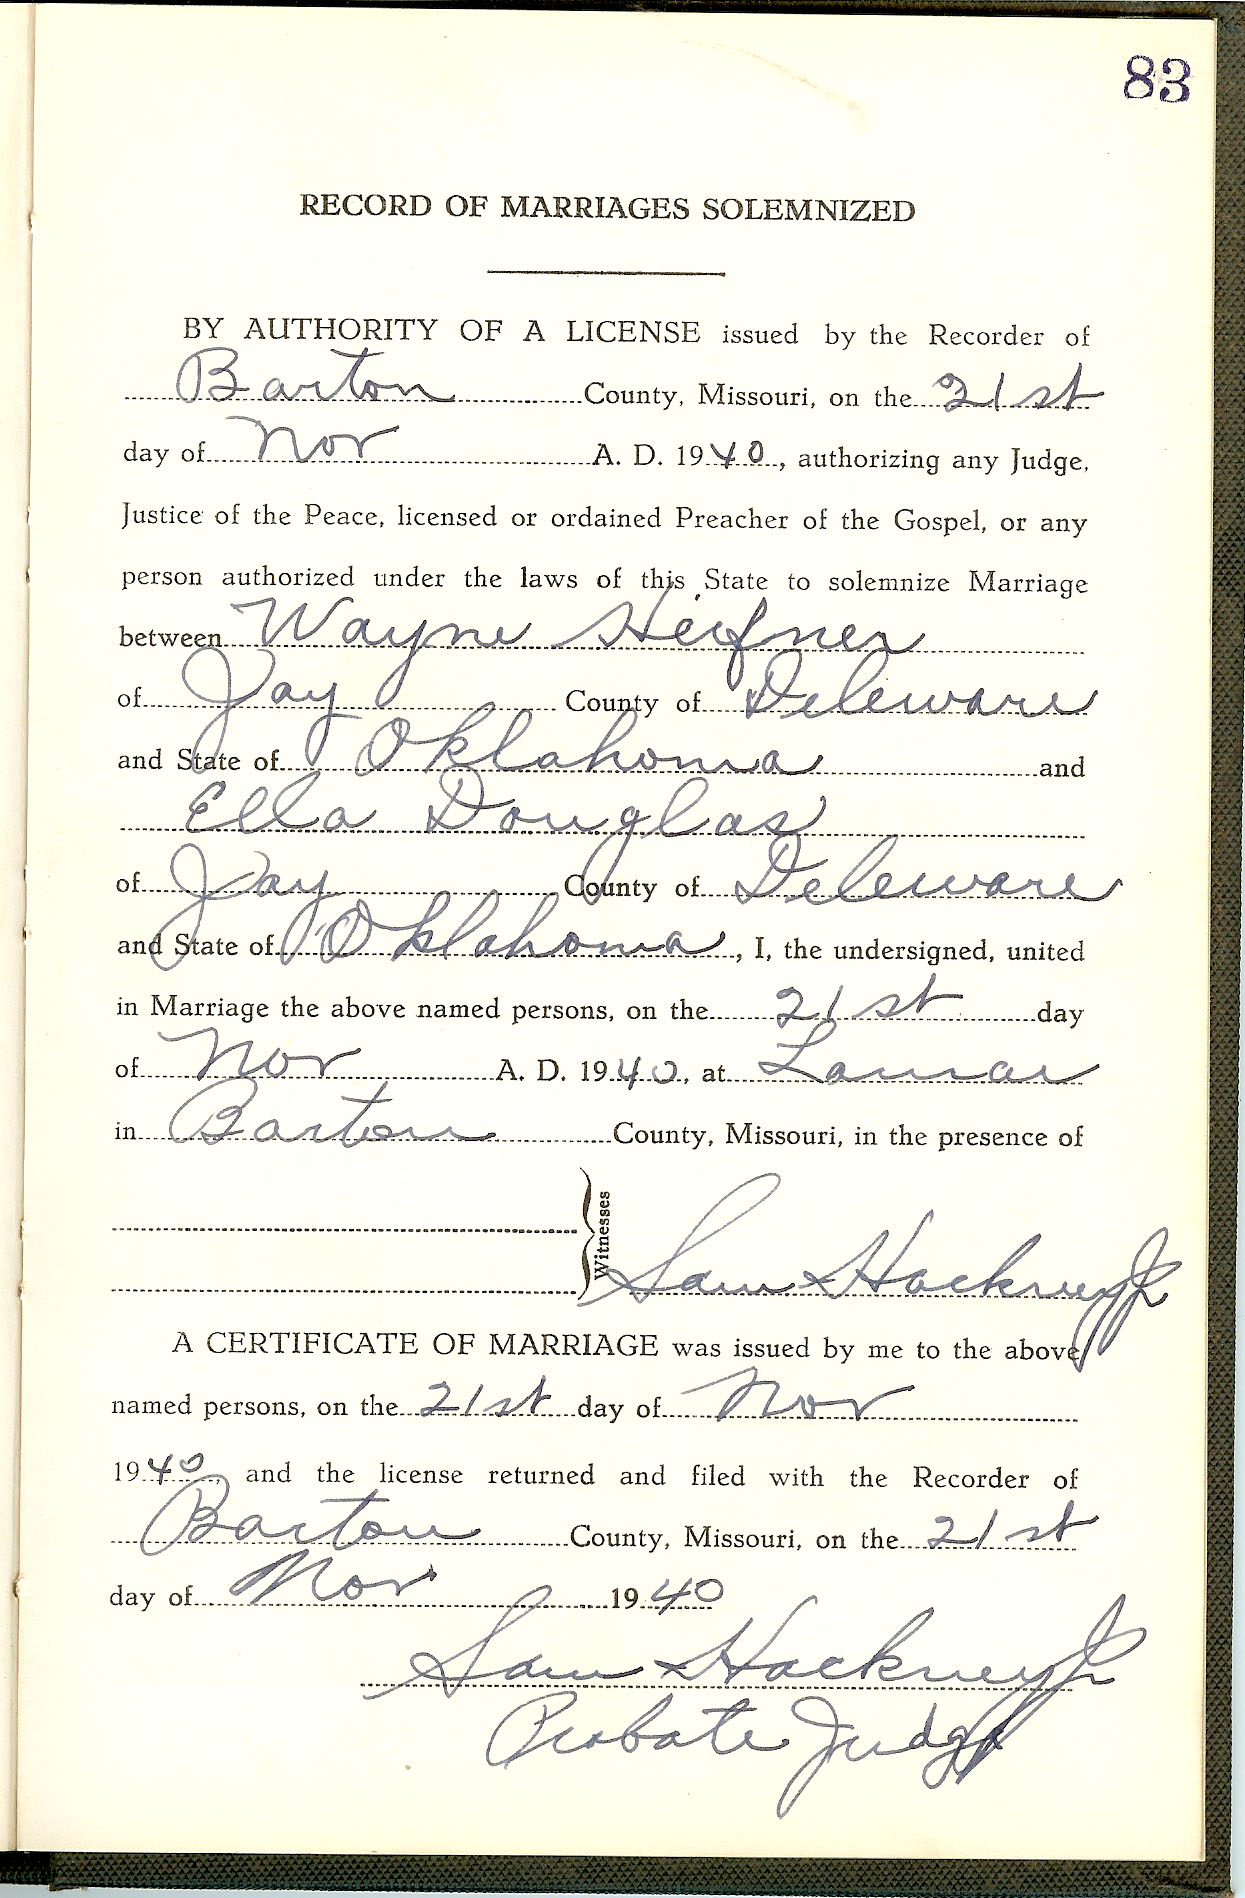 83
RECORD OF MARRIAGES SOLEMNIZED
BY AUTHORITY OF A LICENSE issued by the Recorder of
Barton County, Missouri, on the 21st
day of Nov A. D. 1940, authorizing any Judge,
Justice of the Peace, licensed or ordained Preacher of the Gospel, or any
person authorized under the laws of this State to solemnize Marriage
between Wayne Heifner
of Jay County of Deleware
and State of Oklahoma and
Ella Douglas
of Jay County of Deleware
and State of Oklahoma, I, the undersigned, united
in Marriage the above named persons, on the 21st day
of Nov A. D. 1940, at Lamar
in Barton County, Missouri, in the presence of
Witnesses
Sam Hackney Jr
A CERTIFICATE OF MARRIAGE was issued by me to the above
named persons, on the 21st day of Nov
1940, and the license returned and filed with the Recorder of
Barton County, Missouri, on the 21st
day of Nov 1940
Sam Hackney Jr
Probate Judge